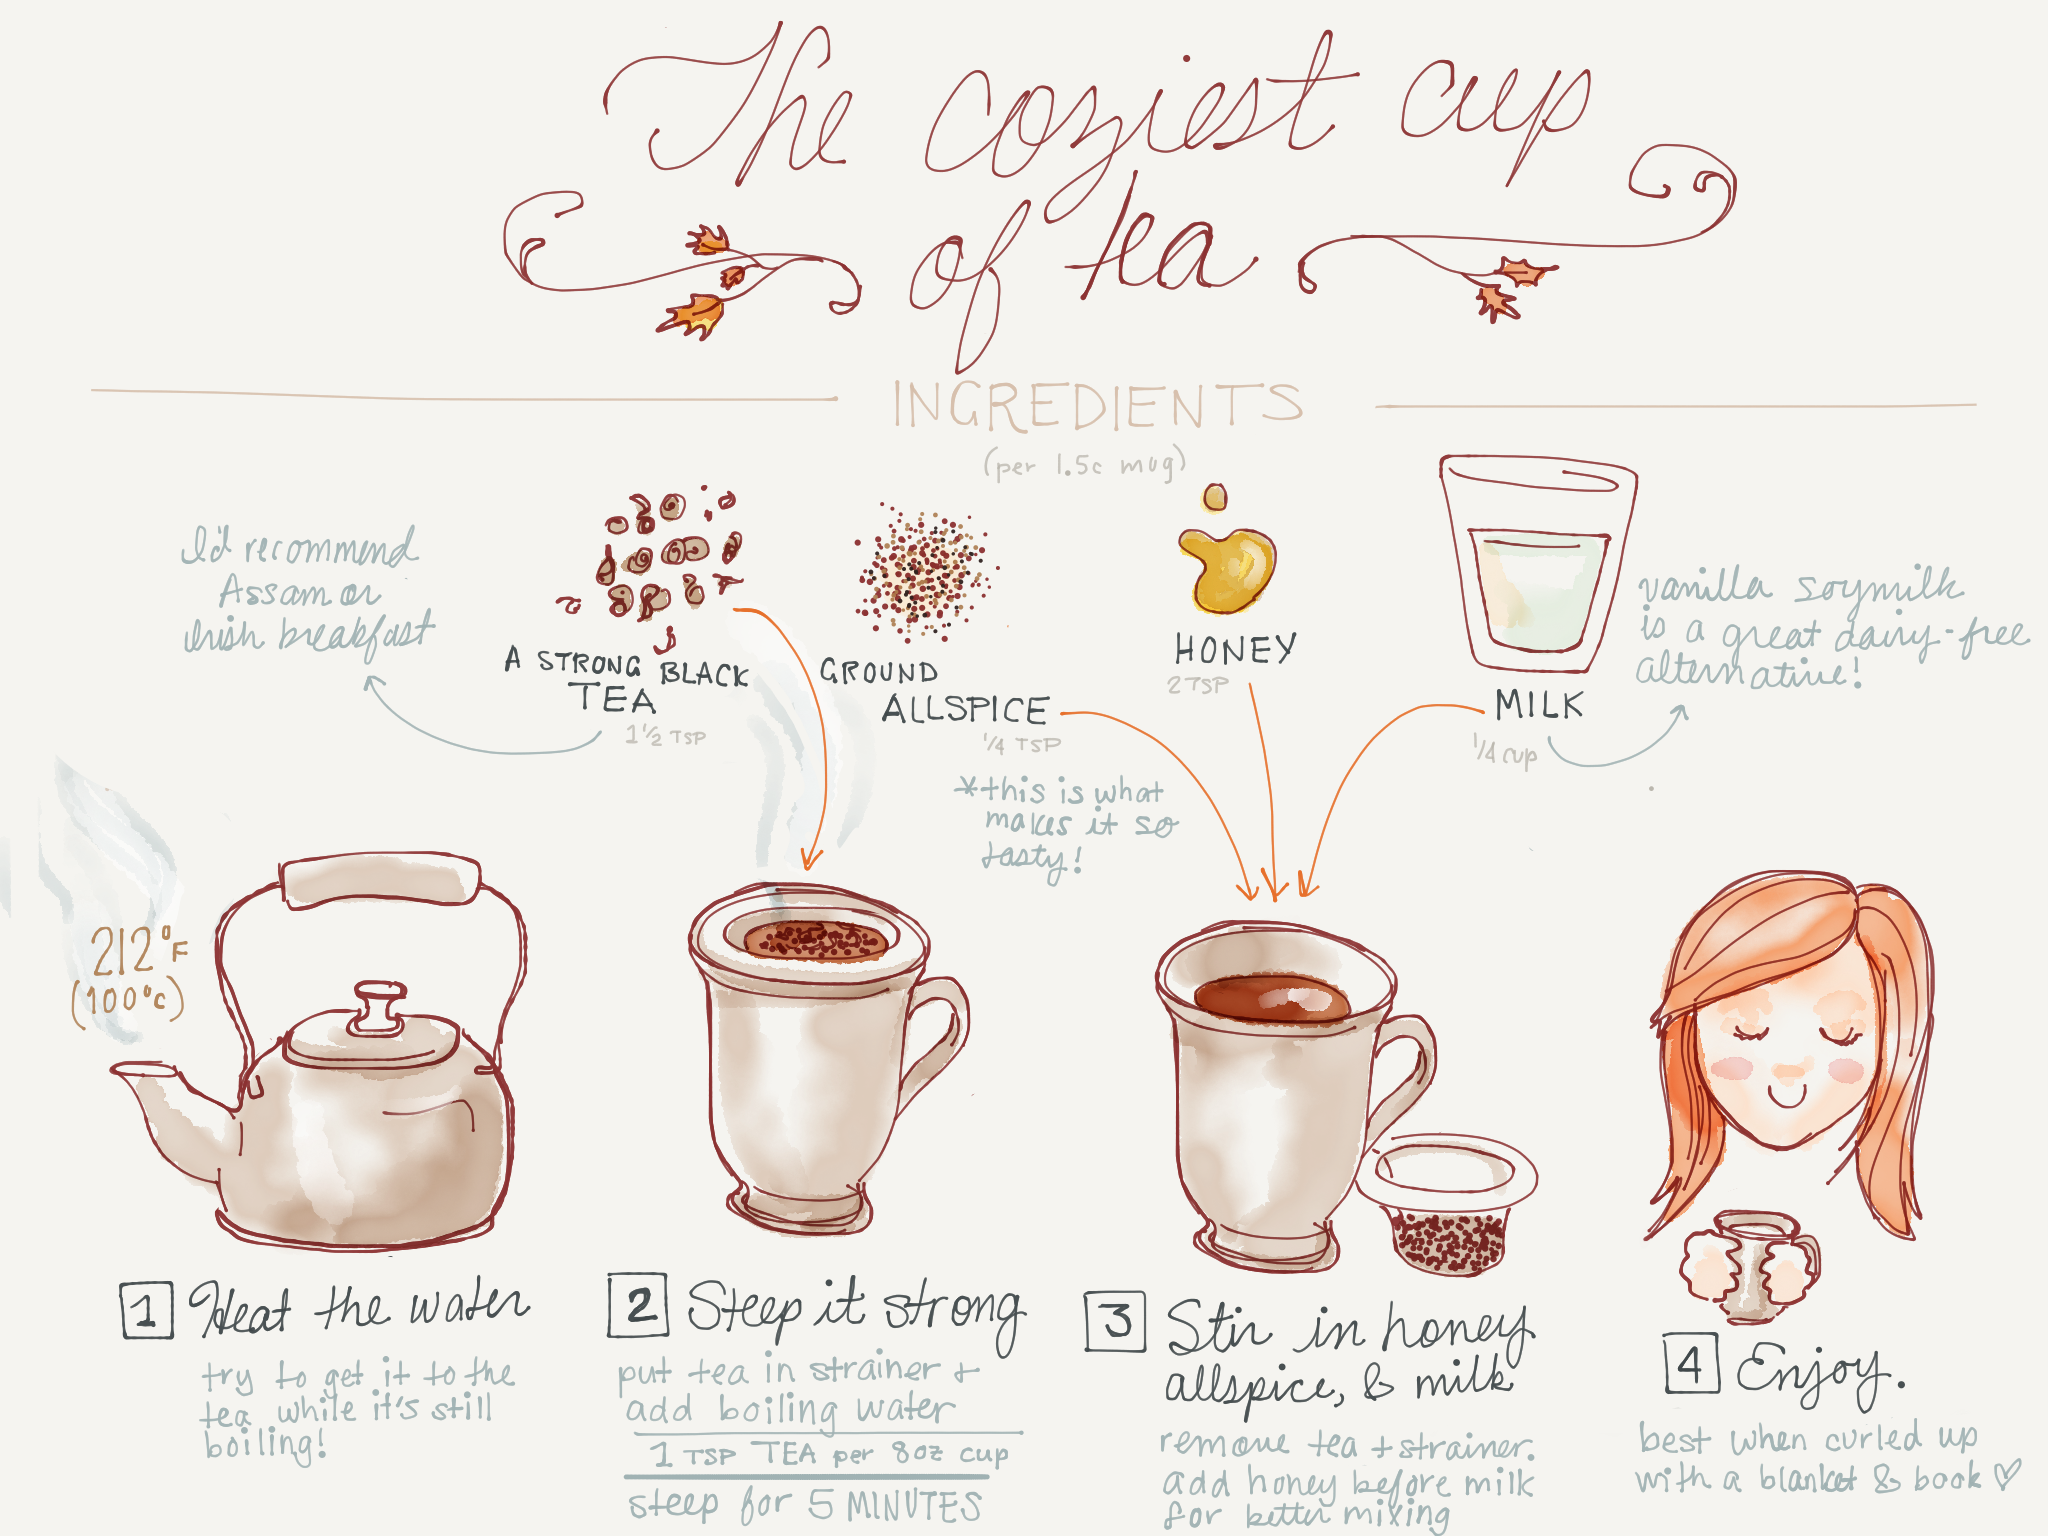 The coziest cup
of tea
INGREDIENTS
(per 1.5c mug)
I'd recommend
Assam or
Irish breakfast
A STRONG BLACK
TEA
1 1/2 TSP
GROUND
ALLSPICE
1/4 TSP
*this is what
makes it so
tasty!
HONEY
2 TSP
MILK
1/4 cup
vanilla soymilk
is a great dairy-free
alternative!
212°F
(100°c)
1 Heat the water
try to get it to the
tea while it's still
boiling!
2 Steep it strong
put tea in strainer +
add boiling water
1 TSP TEA per 8oz cup
steep for 5 MINUTES
3 Stir in honey
allspice, & milk
remove tea + strainer.
add honey before milk
for better mixing
4 Enjoy.
best when curled up
with a blanket & book ♡